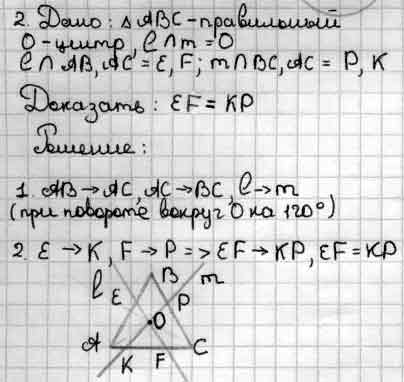 2. Дано: △ ABC - правильный
O - центр, l ∩ m = O
l ∩ AB, AC = E, F; m ∩ BC, AC = P, K
Доказать: EF = KP
Решение:
1. AB → AC, AC → BC, l → m
(при повороте вокруг O на 120°)
2. E → K, F → P => EF → KP, EF = KP
B
l E P m
O
A C
K F